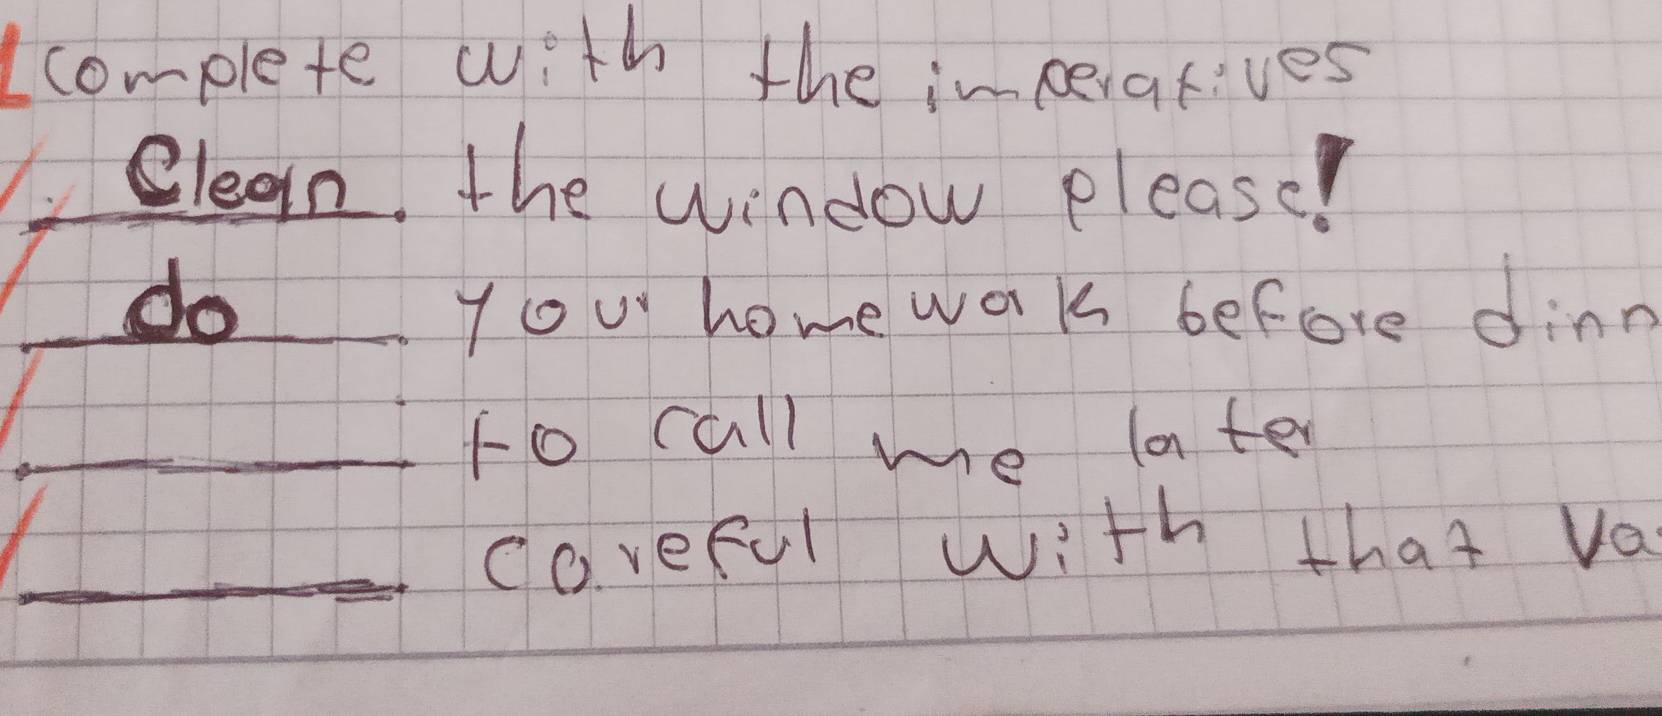 complete with the imperatives
Clean. the window please!
do. your homework before dinn
to call me later
careful with that va